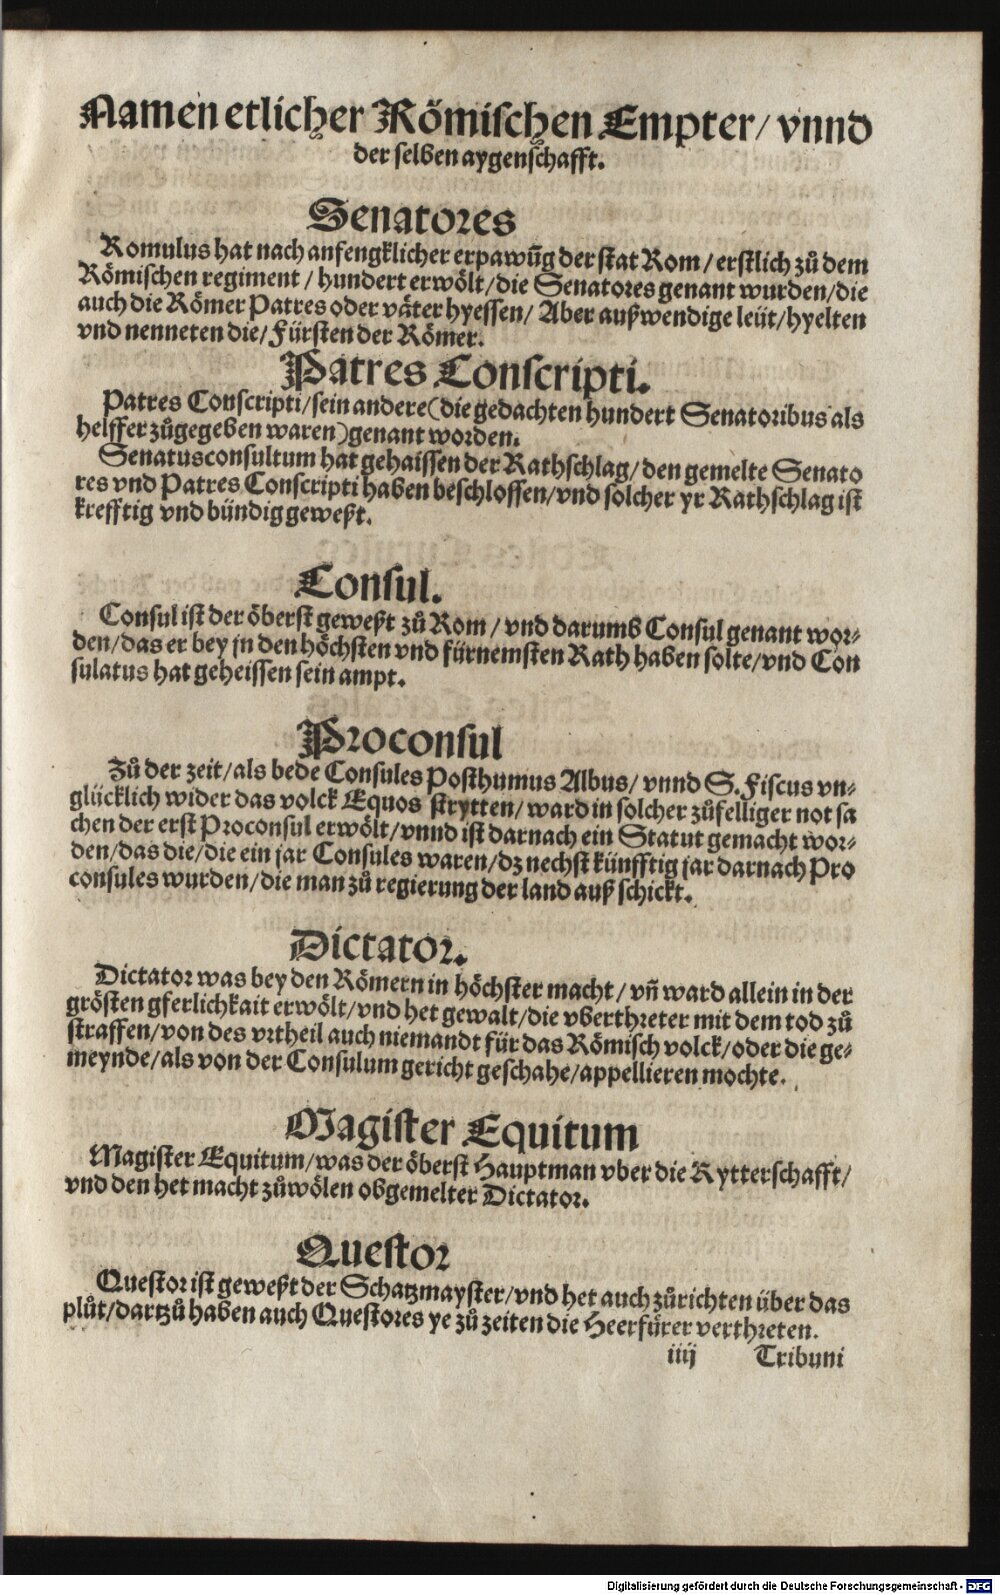 Namen etlicher Römischen Empter/ vnnd
der selben aygenschafft.
Senatores
Romulus hat nach anfengklicher erpawūg der stat Rom/ erstlich zů dem
Römischen regiment/ hundert erwölt/ die Senatores genant wurden/ die
auch die Römer Patres oder väter hyessen/ Aber außwendige leüt/ hyelten
vnd nenneten die/ Fürsten der Römer.
Patres Conscripti.
Patres Conscripti/ sein andere (die gedachten hundert Senatoribus als
helffer zůgegeben waren) genant worden.
Senatusconsultum hat gehaissen der Rathschlag/ den gemelte Senato
res vnd Patres Conscripti haben beschlossen/ vnd solcher yr Rathschlag ist
krefftig vnd bündig geweßt.
Consul.
Consul ist der öberst geweßt zů Rom/ vnd darumb Consul genant wor-
den/ das er bey jn den höchsten vnd fürnemsten Rath haben solte/ vnd Con
sulatus hat geheissen sein ampt.
Proconsul
Zů der zeit/ als bede Consules Posthumus Albus/ vnnd S. Fiscus vn-
glücklich wider das volck Equos strytten/ ward in solcher zůfelliger not sa
chen der erst Proconsul erwölt/ vnnd ist darnach ein Statut gemacht wor-
den/ das die/ die ein jar Consules waren/ dz nechst künfftig jar darnach Pro
consules wurden/ die man zů regierung der land auß schickt.
Dictator.
Dictator was bey den Römern in höchster macht/ vñ ward allein in der
grösten gferlichkait erwölt/ vnd het gewalt/ die vberthreter mit dem tod zů
straffen/ von des vrtheil auch niemandt für das Römisch volck/ oder die ge-
meynde/ als von der Consulum gericht geschahe/ appellieren mochte.
Magister Equitum
Magister Equitum/ was der öberst Hauptman vber die Rytterschafft/
vnd den het macht zůwölen obgemelter Dictator.
Questor
Questor ist geweßt der Schatzmayster/ vnd het auch zůrichten über das
plůt/ dartzů haben auch Questores ye zů zeiten die Heerfürer verthreten.
iiij Tribuni
Digitalisierung gefördert durch die Deutsche Forschungsgemeinschaft - DFG